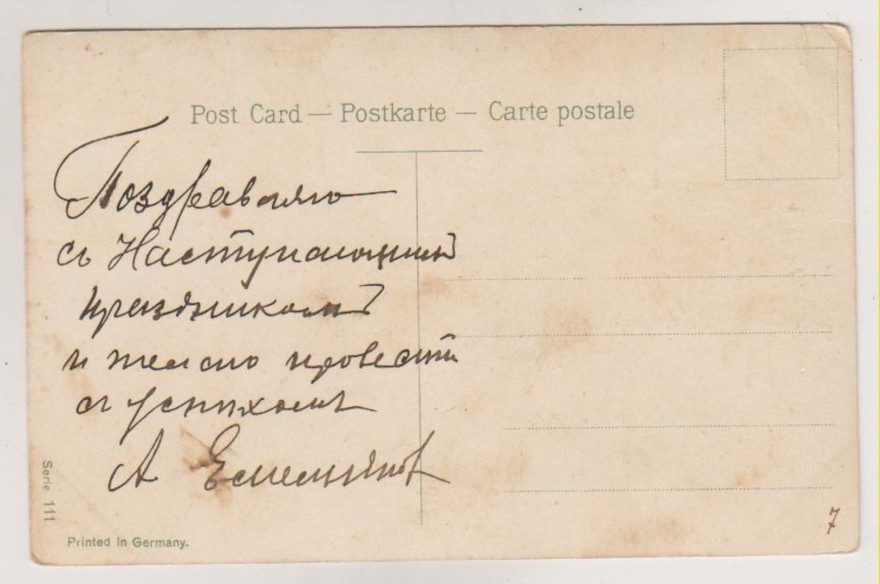 Post Card — Postkarte — Carte postale
Поздравляю
съ Наступающимъ
праздникомъ
и желаю провести
съ успѣхомъ
А Емельянов
Serie 111
Printed in Germany.
7